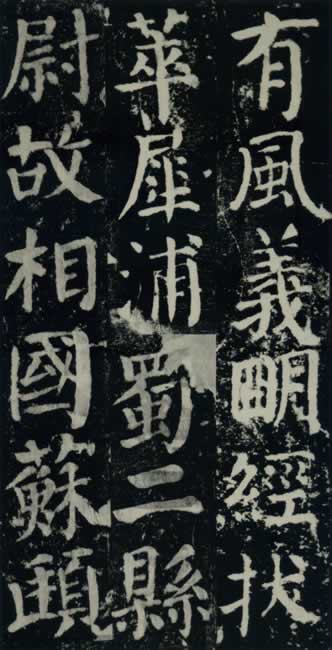 有風義明經拔
萃犀浦蜀二縣
尉故相國蘇頲